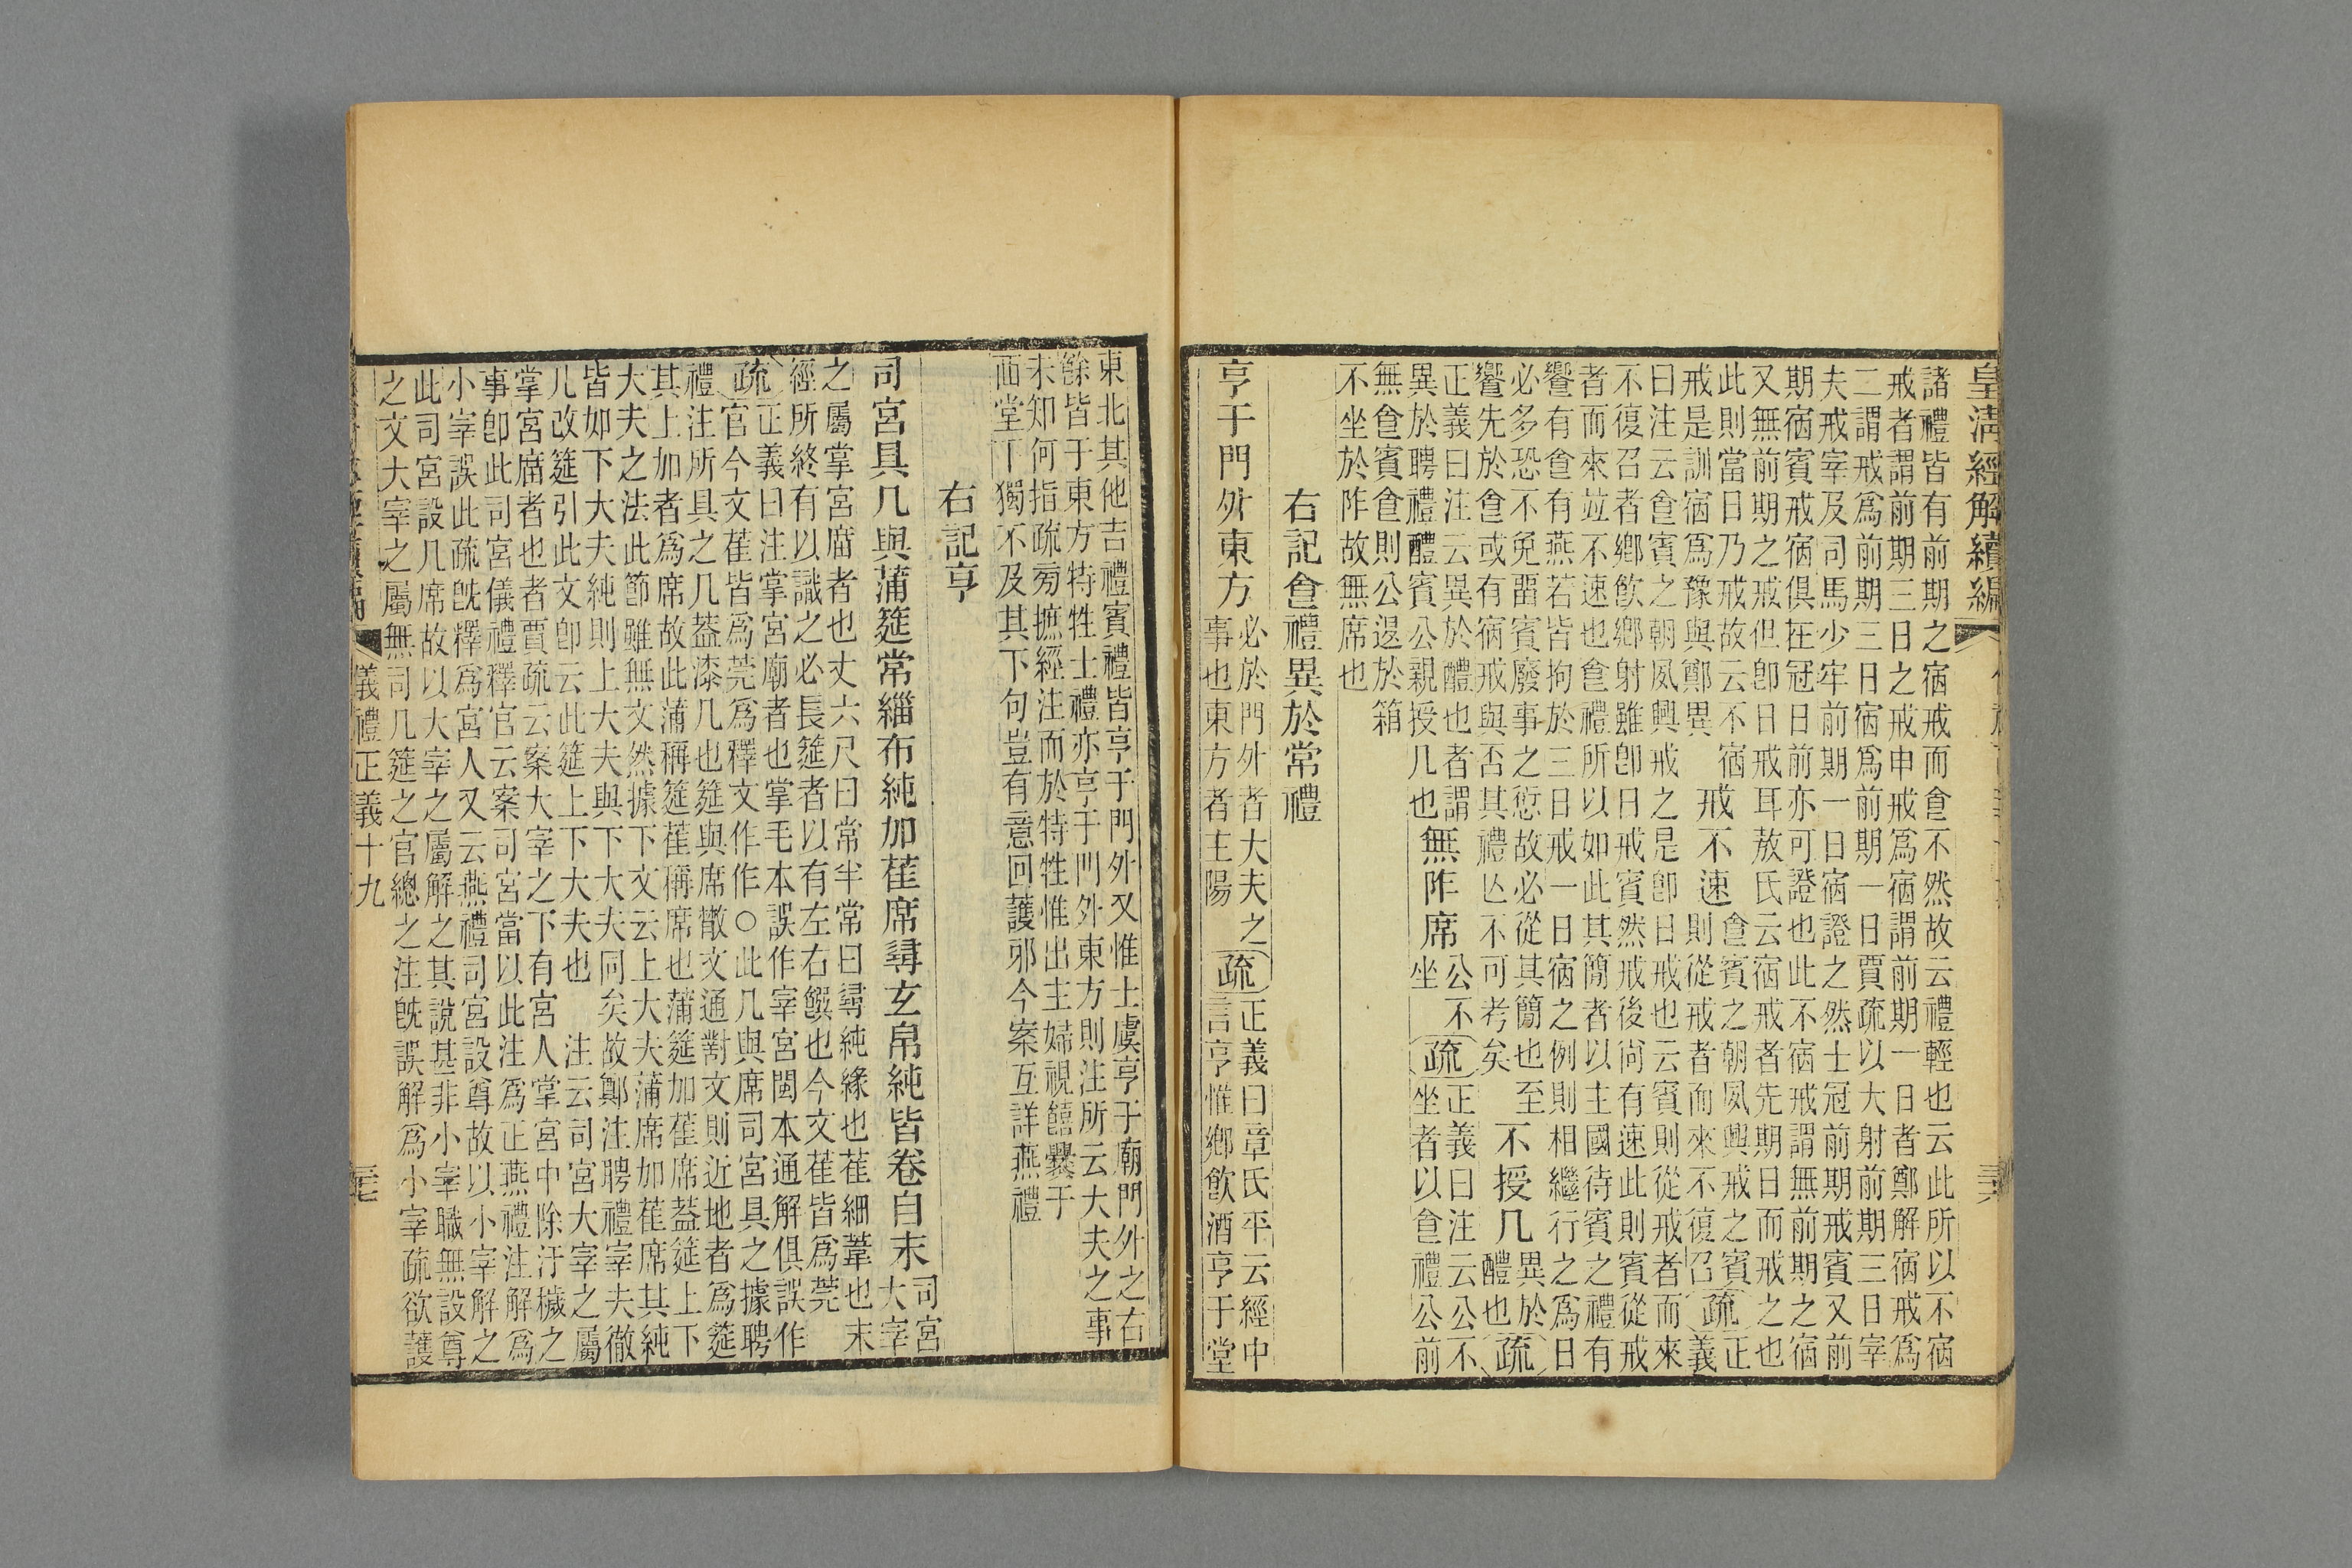 皇清經解續編
諸禮皆有前期之宿戒而食不然故云禮輕也云此所以不宿
戒者謂前期三日之戒申戒爲宿謂前期一日者鄭解宿戒爲
二謂戒爲前期三日宿爲前期一日賈疏以大射前期三日宰
夫戒宰及司馬少牢前期一日宿證之然士冠前期戒賓又前
期宿賓戒宿俱在冠日前亦可證也此不宿戒謂無前期之宿
又無前期之戒但卽日戒耳敖氏云宿戒者先期日而戒之也
此則當日乃戒故云不宿
戒是訓宿爲豫與鄭異
戒不速
食賓之朝夙興戒之賓
則從戒者而來不復召
疏
正
義
曰注云食賓之朝夙興戒之是卽日戒也云賓則從戒者而來
不復召者鄉飲鄉射雖卽日戒賓然戒後尙有速此則賓從戒
者而來竝不速也食禮所以如此其簡者以主國待賓之禮有
饗有食有燕若皆拘於三日戒一日宿之例則相繼行之爲日
必多恐不免畱賓廢事之愆故必從其簡也至
饗先於食或有宿戒與否其禮亾不可考矣
不授几
異於
醴也
疏
正義曰注云異於醴也者謂
異於聘禮醴賓公親授几也
無阼席
公不
坐
疏
正義曰注云公不
坐者以食禮公前
無食賓食則公退於箱
不坐於阼故無席也
右記食禮異於常禮
亨于門外東方
必於門外者大夫之
事也東方者主陽
疏
正義曰章氏平云經中
言亨惟鄉飲酒亨于堂
東北其他吉禮賓禮皆亨于門外又惟士虞亨于廟門外之右
餘皆于東方特牲士禮亦亨于門外東方則注所云大夫之事
未知何指疏旁摭經注而於特牲惟出主婦視饎爨于
西堂下獨不及其下句豈有意回護邪今案互詳燕禮
右記亨
司宮具几與蒲筵常緇布純加萑席尋玄帛純皆卷自末
司宮
大宰
之屬掌宮廟者也丈六尺曰常半常曰尋純緣也萑細葦也末
經所終有以識之必長筵者以有左右饌也今文萑皆爲莞
疏
正義曰注掌宮廟者也掌毛本誤作宰宮閩本通解俱誤作
官今文萑皆爲莞爲釋文作作○此几與席司宮具之據聘
禮注所具之几蓋漆几也筵與席散文通對文則近地者爲筵
其上加者爲席故此蒲稱筵萑稱席也蒲筵加萑席蓋筵上下
大夫之法此節雖無文然據下文云上大夫蒲席加萑席其純
皆如下大夫純則上大夫與下大夫同矣故鄭注聘禮宰夫徹
几改筵引此文卽云此筵上下大夫也　注云司宮大宰之屬
掌宮廟者也者賈疏云案大宰之下有宮人掌宮中除汙穢之
事卽此司宮儀禮釋官云案司宮當以此注爲正燕禮注解爲
小宰誤此疏旣釋爲宮人又云燕禮司宮設尊故以小宰解之
此司宮設几席故以大宰之屬解之其說甚非小宰職無設尊
之文大宰之屬無司几筵之官總之注旣誤解爲小宰疏欲護
儀禮正義十九